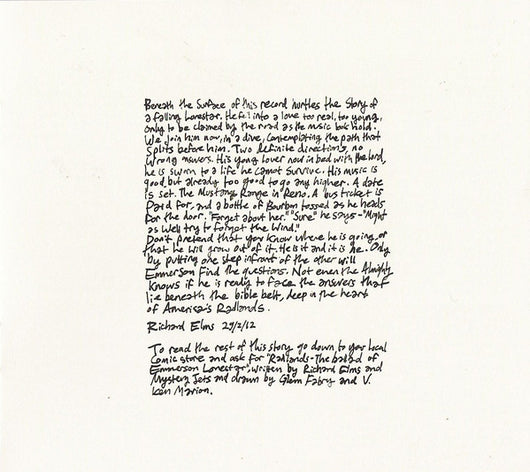 Beneath the Surface of this record hurtles the Story of
a falling Lonestar. He fell into a love too real, too young,
only to be claimed by the road as the music took hold.
We join him now, in a dive, Contemplating the path that
Splits before him. Two definite directions, no
wrong answers. His young lover now in bed with the lord,
he is sworn to a life he cannot Survive. His music is
good, but already too good to go any higher. A date
is set. The Mustang Range in Reno. A bus ticket is
Paid for, and a bottle of Bourbon tossed as he heads
for the door. "Forget about her." "Sure" he says - "Might
as well try to forget the Wind."
Don't pretend that you know where he is going, or
that he will grow out of it. He is it and it is he. Only
by putting one step infront of the other will
Emmerson find the questions. Not even the Almighty
knows if he is ready to face the answers that
lie beneath the bible belt, deep in the heart
of America's Radlands.
Richard Elms 29/2/12
To read the rest of this story go down to your local
Comic store and ask for "Radlands - The ballad of
Emmerson Lonestar", written by Richard Elms and
Mystery Jets and drawn by Glenn Fabry and V.
Ken Marion.